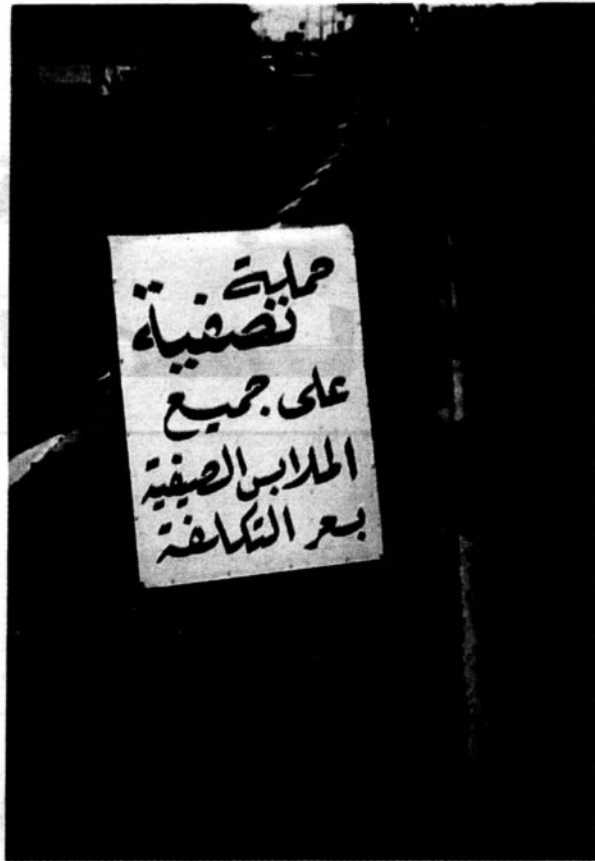 حملة
تصفية
على جميع
الملابس الصيفية
بسعر التكلفة